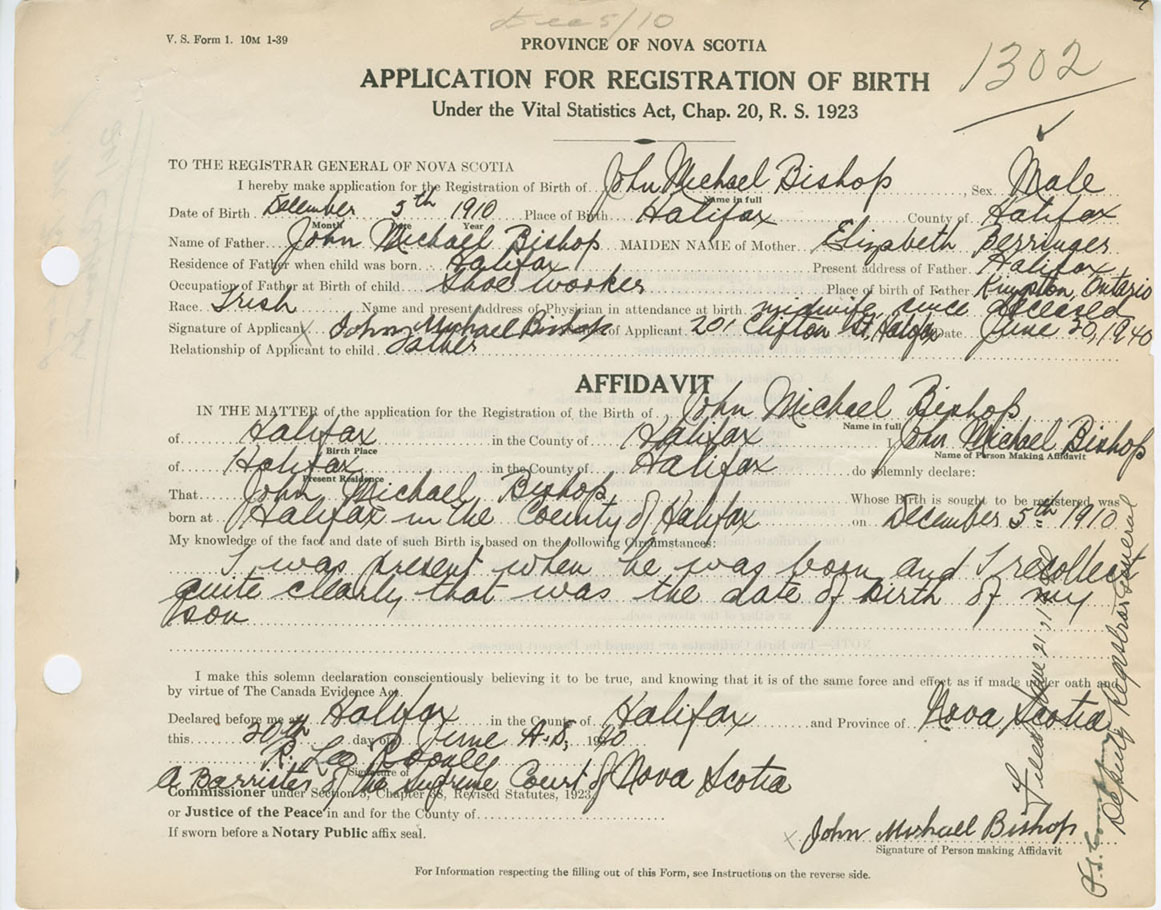 Dec 5/10
V. S. Form 1. 10M 1-39
PROVINCE OF NOVA SCOTIA
1302
APPLICATION FOR REGISTRATION OF BIRTH
Under the Vital Statistics Act, Chap. 20, R. S. 1923
TO THE REGISTRAR GENERAL OF NOVA SCOTIA
I hereby make application for the Registration of Birth of John Michael Bishop, Sex Male
Name in full
Date of Birth December 5th 1910 Place of Birth Halifax County of Halifax
Month Date Year
Name of Father John Michael Bishop MAIDEN NAME of Mother Elizabeth Berringer
Residence of Father when child was born Halifax Present address of Father Halifax
Occupation of Father at Birth of child Shoe worker Place of birth of Father Kingston, Ontario
Race Irish Name and present address of Physician in attendance at birth midwife since deceased
Signature of Applicant x John Michael Bishop of Applicant 201 Clifton St, Halifax Date June 20, 1940
Relationship of Applicant to child father
AFFIDAVIT
IN THE MATTER of the application for the Registration of the Birth of John Michael Bishop
Name in full
of Halifax in the County of Halifax I John Michael Bishop
Birth Place Name of Person Making Affidavit
of Halifax in the County of Halifax do solemnly declare:
Present Residence
That John Michael Bishop Whose Birth is sought to be registered was
born at Halifax in the County of Halifax on December 5th 1910
My knowledge of the fact and date of such Birth is based on the following Circumstances:
I was present when he was born and I recollect
quite clearly that was the date of birth of my
son
I make this solemn declaration conscientiously believing it to be true, and knowing that it is of the same force and effect as if made under oath and
by virtue of The Canada Evidence Act.
Declared before me at Halifax in the County of Halifax and Province of Nova Scotia
this 20th day of June A.D. 1940
R. Leo
Signature of
A Barrister of the Supreme Court of Nova Scotia
Commissioner under Section 3, Chapter 38, Revised Statutes, 1923
or Justice of the Peace in and for the County of
If sworn before a Notary Public affix seal.
x John Michael Bishop
Signature of Person making Affidavit
For Information respecting the filling out of this Form, see Instructions on the reverse side.
Filed June 21,
Deputy Registrar General